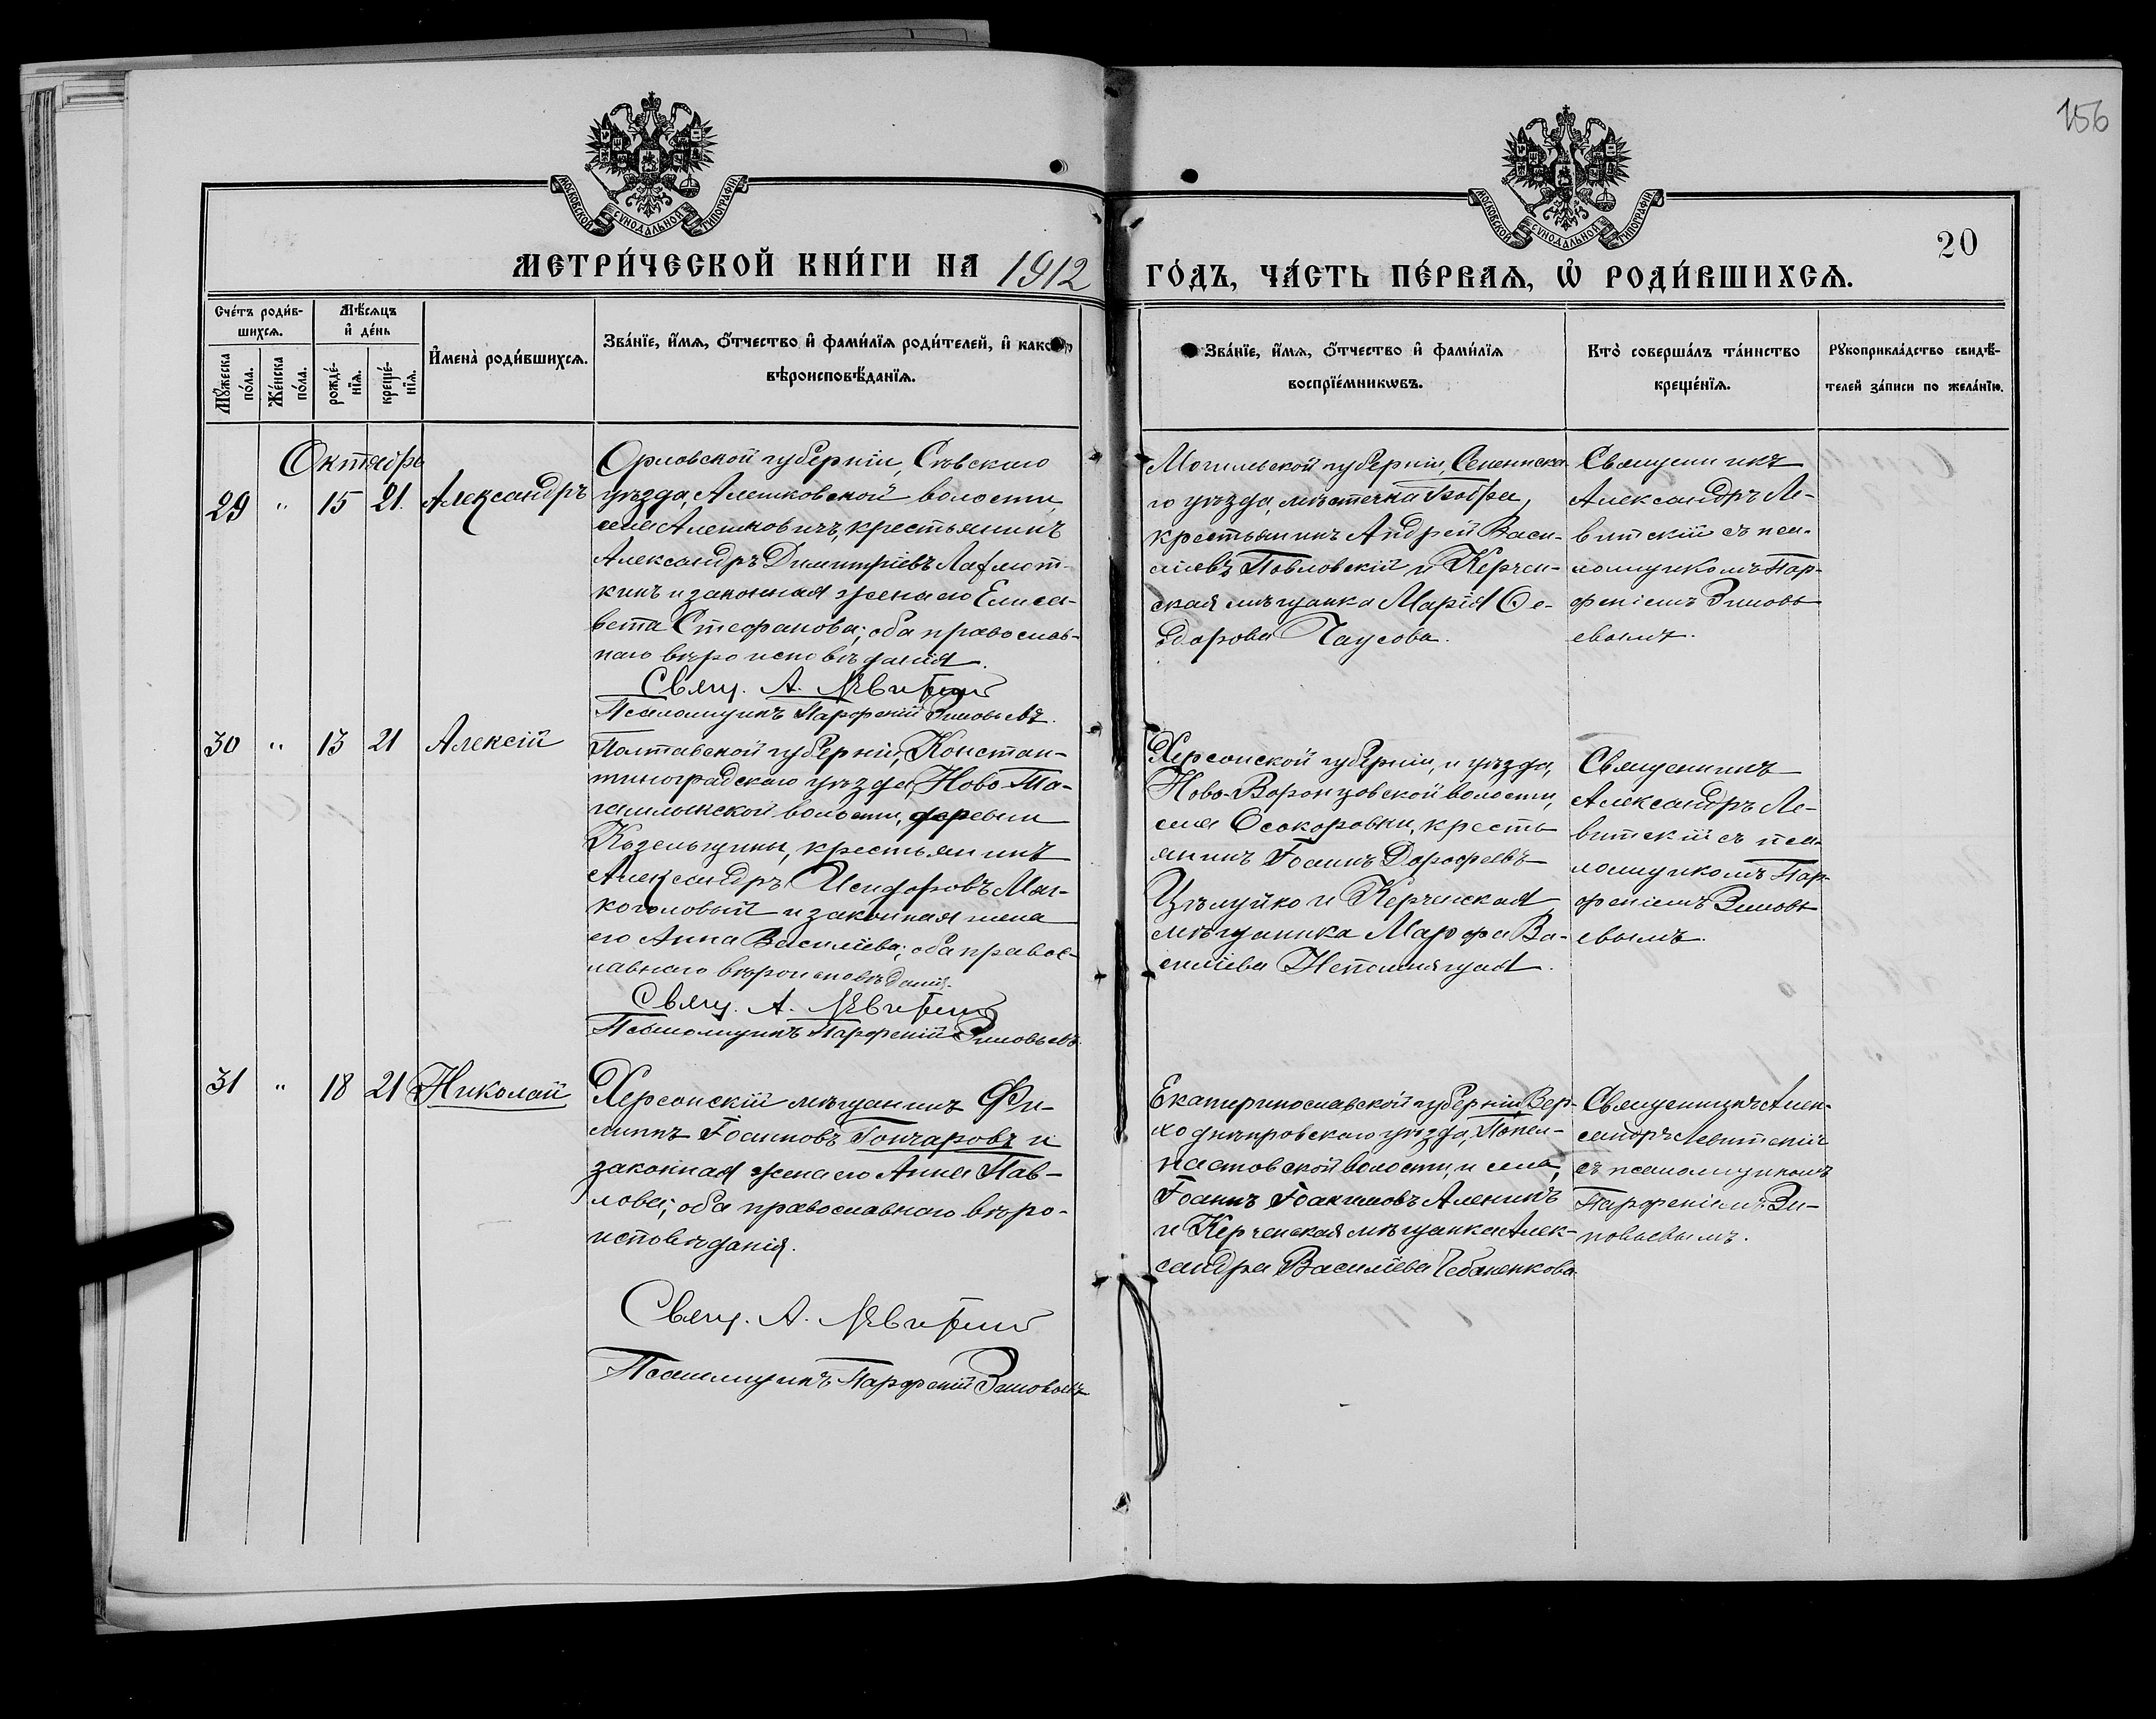 156
МОСКОВСКОЙ СѴНОДАЛЬНОЙ ТИПОГРАФІИ
МОСКОВСКОЙ СѴНОДАЛЬНОЙ ТИПОГРАФІИ
20
МЕТРИ́ЧЕСКОЙ КНИ́ГИ НА 1912 ГО́ДЪ, ЧА́СТЬ ПЕ́РВАѦ, Ѡ҆ РОДИ́ВШИХСѦ.
Сче́тъ роди́в-
шихсѧ.
Мꙋ́жеска
по́ла.
Же́нска
по́ла.
Мѣ́сѧцъ
и҆ де́нь
рожде́-
нїѧ.
креще́-
нїѧ.
И҆мена̀ роди́вшихсѧ.
Зва́нїе, и҆́мѧ, ѻ҆́тчество и҆ фами́лїѧ роди́телей, и҆ како́гѡ
вѣроисповѣ́данїѧ.
Зва́нїе, и҆́мѧ, ѻ҆́тчество и҆ фами́лїѧ
воспрїе́мникѡвъ.
Кто̀ соверша́лъ та́инство
креще́нїѧ.
Рꙋкоприкла́дство свидѣ́-
телей за́писи по жела́нїю.
Октябрь
29 " 15 21. Александръ
Орловской губерніи, Сѣвскаго
уѣзда, Алешковской волости,
села Алешковичъ, крестьянинъ
Александръ Димитріевъ Лахмот-
кинъ и законная жена его Елиса-
вета Стефанова; оба православ-
наго вѣроисповѣданія.
Свящ. А. Левитскій
Псаломщикъ Парфеній Зиновьевъ.
Могилевской губерніи, Сеннинска-
го уѣзда, мѣстечка Бобра,
крестьянинъ Андрей Васи-
ліевъ Павловскій и Керчен-
ская мѣщанка Марія Ѳе-
одорова Чаусова.
Священникъ
Александръ Ле-
витскій съ пса-
ломщикомъ Пар-
феніемъ Зиновь-
евымъ.
30 " 13 21 Алексій
Полтавской губерніи, Констан-
тиноградскаго уѣзда, Ново-Та-
гамлыкской волости, деревни
Козельщины, крестьянинъ
Александръ Исидоровъ Мяг-
коголовый и законная жена
его Анна Василіева; оба правос-
лавнаго вѣроисповѣданія.
Свящ. А. Левитскій
Псаломщикъ Парфеній Зиновьевъ.
Херсонской губерніи, и уѣзда,
Ново-Воронцовской волости,
села Осокоровки, кресть-
янинъ Іоаннъ Дорофеевъ
Цѣлуйко и Керченская
мѣщанка Марфа Ва-
силіева Непомнящая.
Священникъ
Александръ Ле-
витскій съ пса-
ломщикомъ Пар-
феніемъ Зиновь-
евымъ.
31 " 18 21 Николай
Херсонскій мѣщанинъ Фи-
липпъ Іоанновъ Гончаровъ и
законная жена его Анна Пав-
лова; оба православнаго вѣро-
исповѣданія.
Свящ. А. Левитскій
Псаломщикъ Парфеній Зиновьевъ
Екатеринославской губерніи, Вер-
ходнѣпровскаго уѣзда, Попель-
настовской волости, и села,
Іоаннъ Іоакимовъ Аленинъ
и Керченская мѣщанка Алек-
сандра Василіева Чебаненкова.
Священникъ Алек-
сандръ Левитскій
съ псаломщикомъ
Парфеніемъ Зи-
новьевымъ.